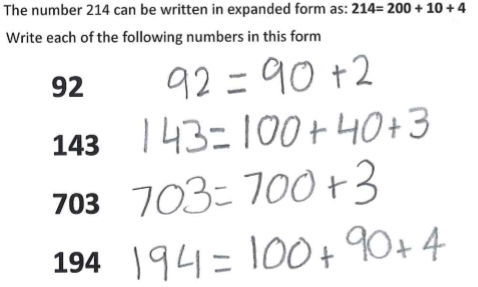 The number 214 can be written in expanded form as: 214= 200 + 10 + 4
Write each of the following numbers in this form
92 92 = 90 + 2
143 143 = 100 + 40 + 3
703 703 = 700 + 3
194 194 = 100 + 90 + 4